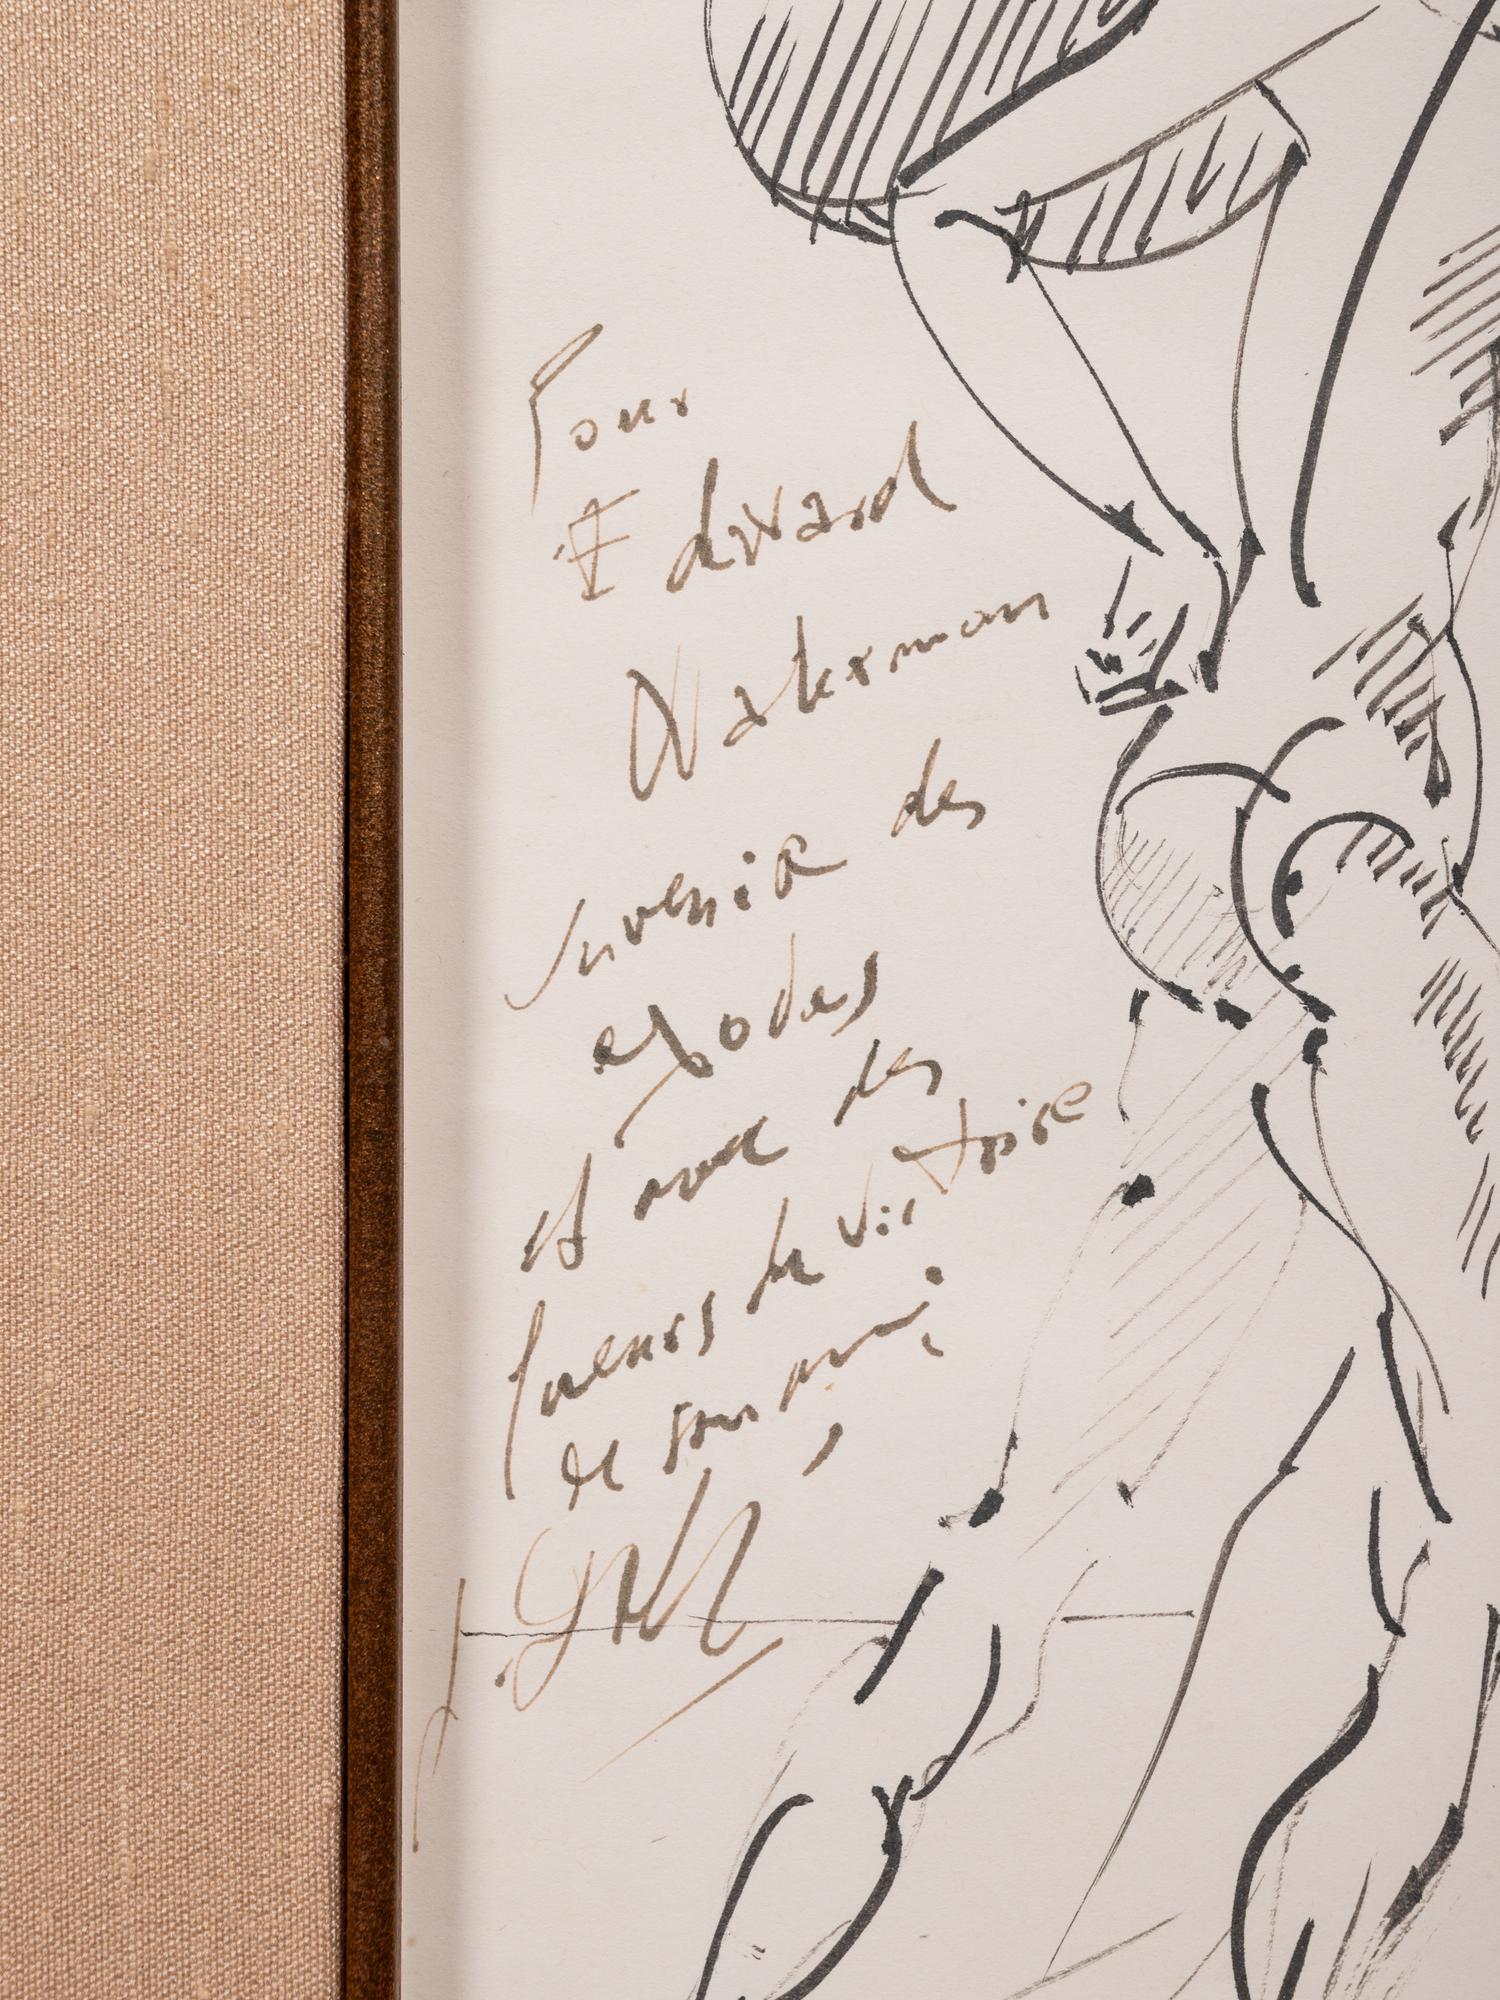 Pour
Edward
Nakerman
Souvenir des
exodes
et avec des
fureurs de victoire
de son ami,